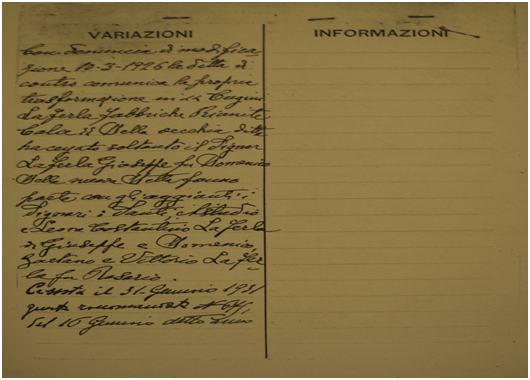 VARIAZIONI
INFORMAZIONI
Con denuncia di modifica
zione 12-3-1926 la ditta di
contro comunica la propria
trasformazione in "Cugini
La Ferla Fabbriche Riunite
Della vecchia ditta
ha cessato soltanto il Signor
La Ferla Giuseppe fu Domenico
Della nuova Ditta fanno
parte con gli aggiunti i
Signori: Danti,
e Leone Costantino La Ferla
di Giuseppe e Domenico,
Gaetano e Vittorio La Fer
la fu Rosario.
Cessata il 31. Gennaio 1931
giusta raccomandata
del 16 Gennaio detto anno